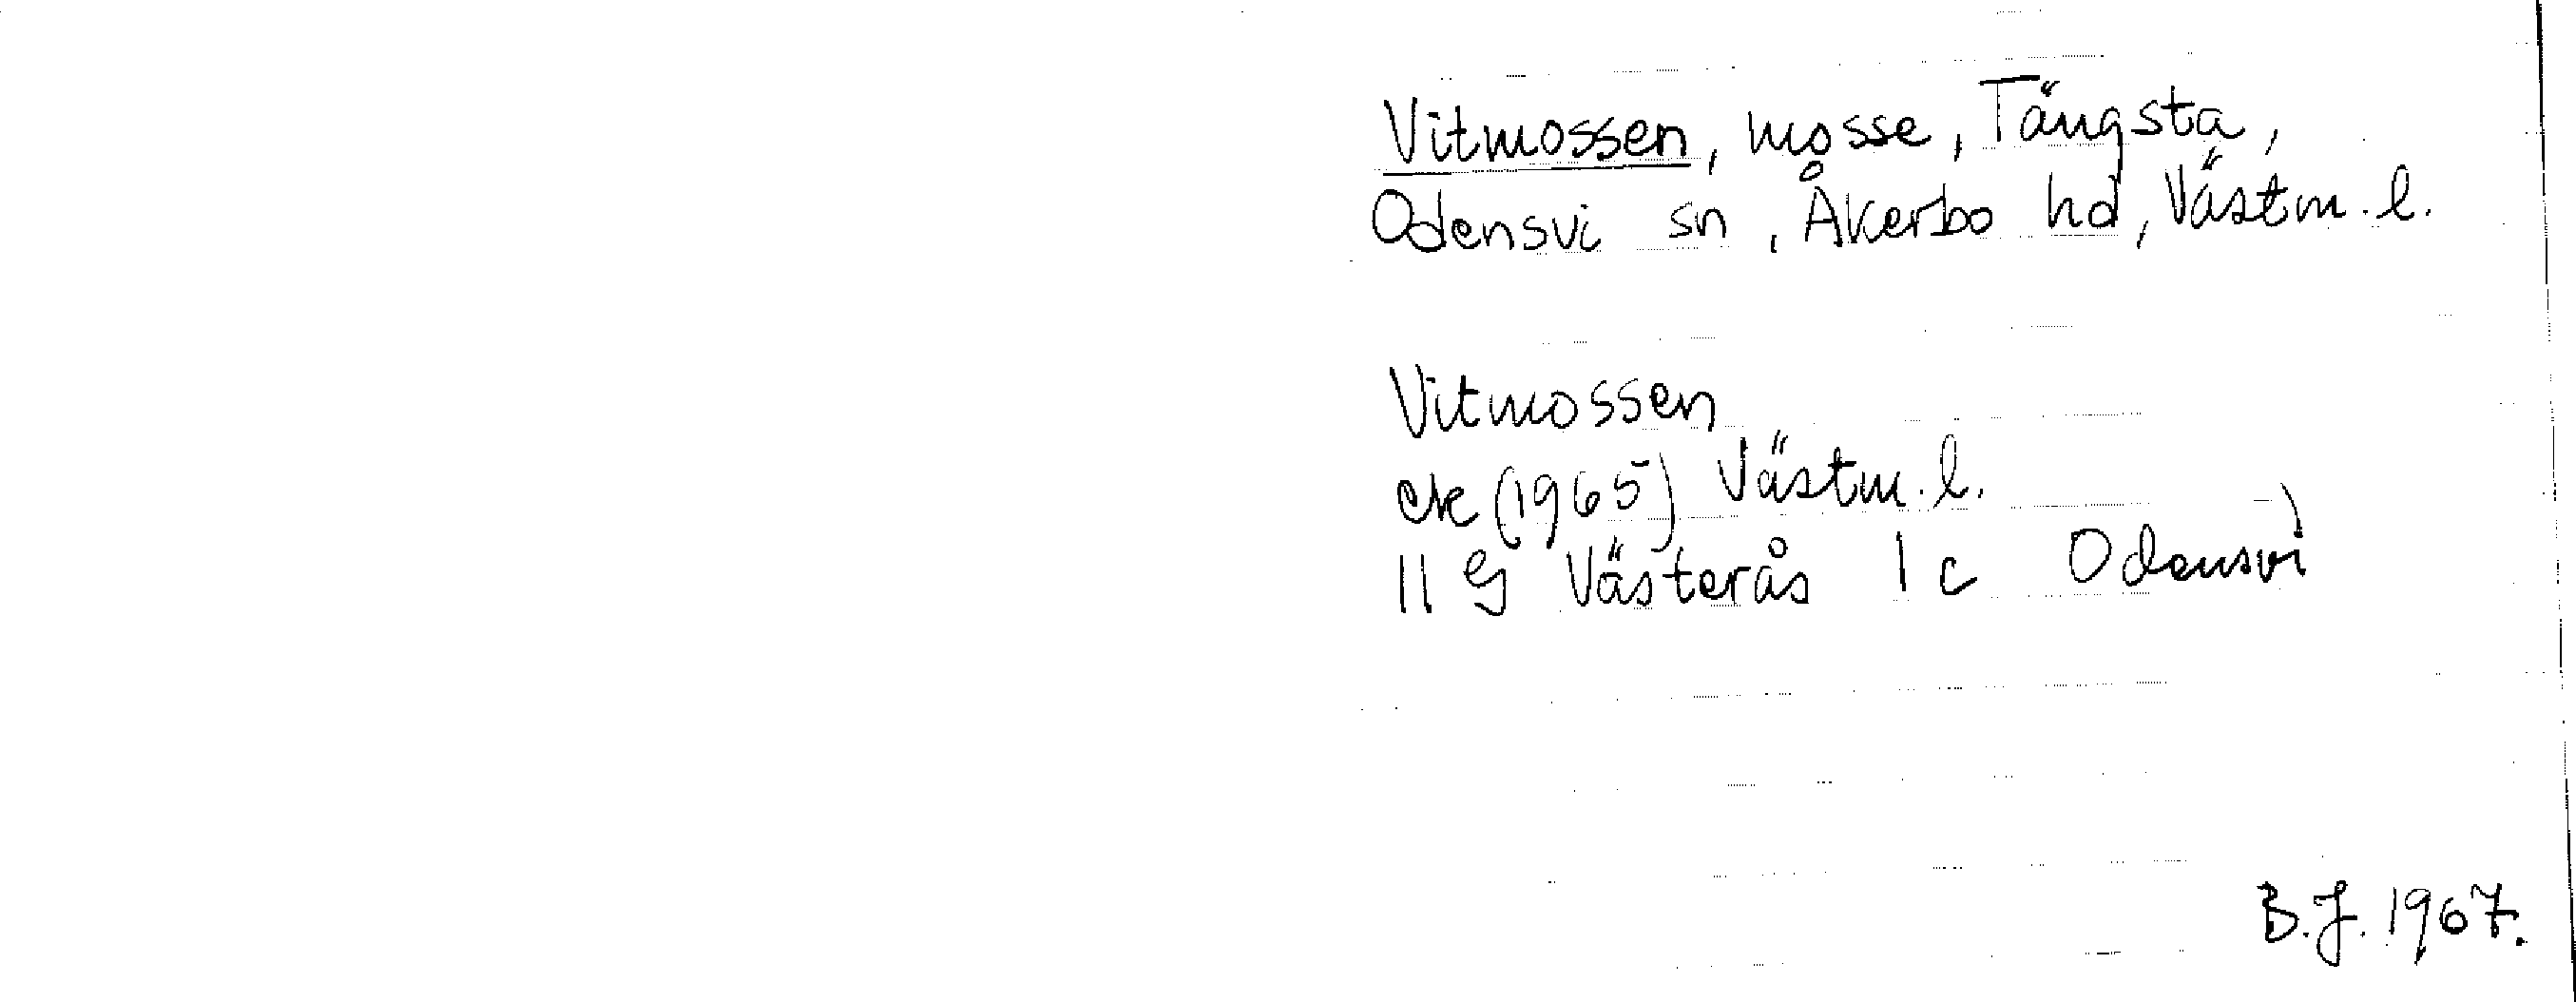 Vitmossen, mosse, Tängsta,
Odensvi sn, Åkerbo hd, Västm. l.
Vitmossen
ek (1965) Västm. l.
11 G Västerås 1 c Odensvi
B.J. 1967.